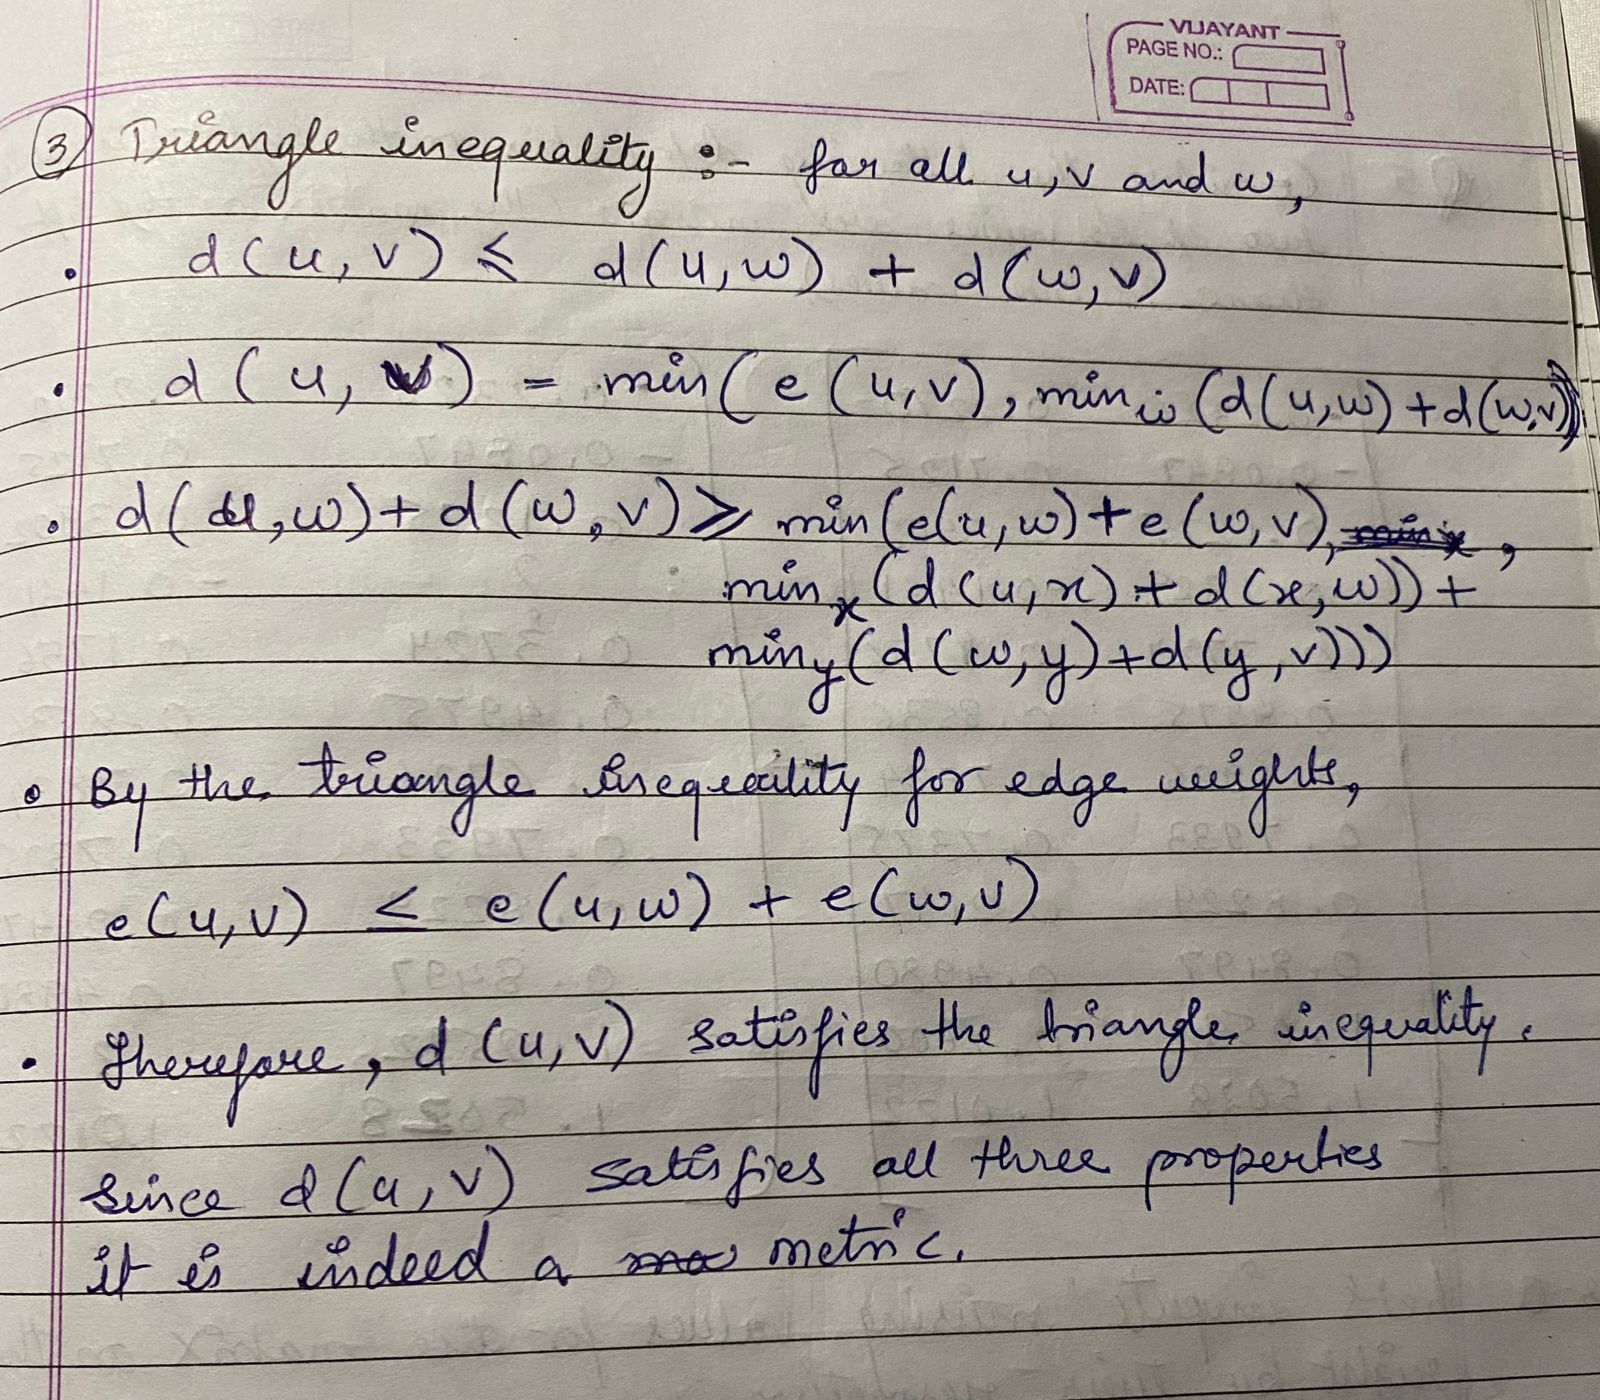 VIJAYANT
PAGE NO.:
DATE:
③ Triangle inequality :- for all u, v and w,
• d(u, v) ≤ d(u, w) + d(w, v)
• d(u, v) = min(e(u, v), min_w(d(u, w) + d(w, v)))
• d(u, w) + d(w, v) ≥ min(e(u, w) + e(w, v), ,
min_x(d(u, x) + d(x, w)) +
min_y(d(w, y) + d(y, v)))
• By the triangle inequality for edge weights,
e(u, v) ≤ e(u, w) + e(w, v)
• Therefore, d(u, v) satisfies the triangle inequality.
Since d(u, v) satisfies all three properties
it is indeed a metric.